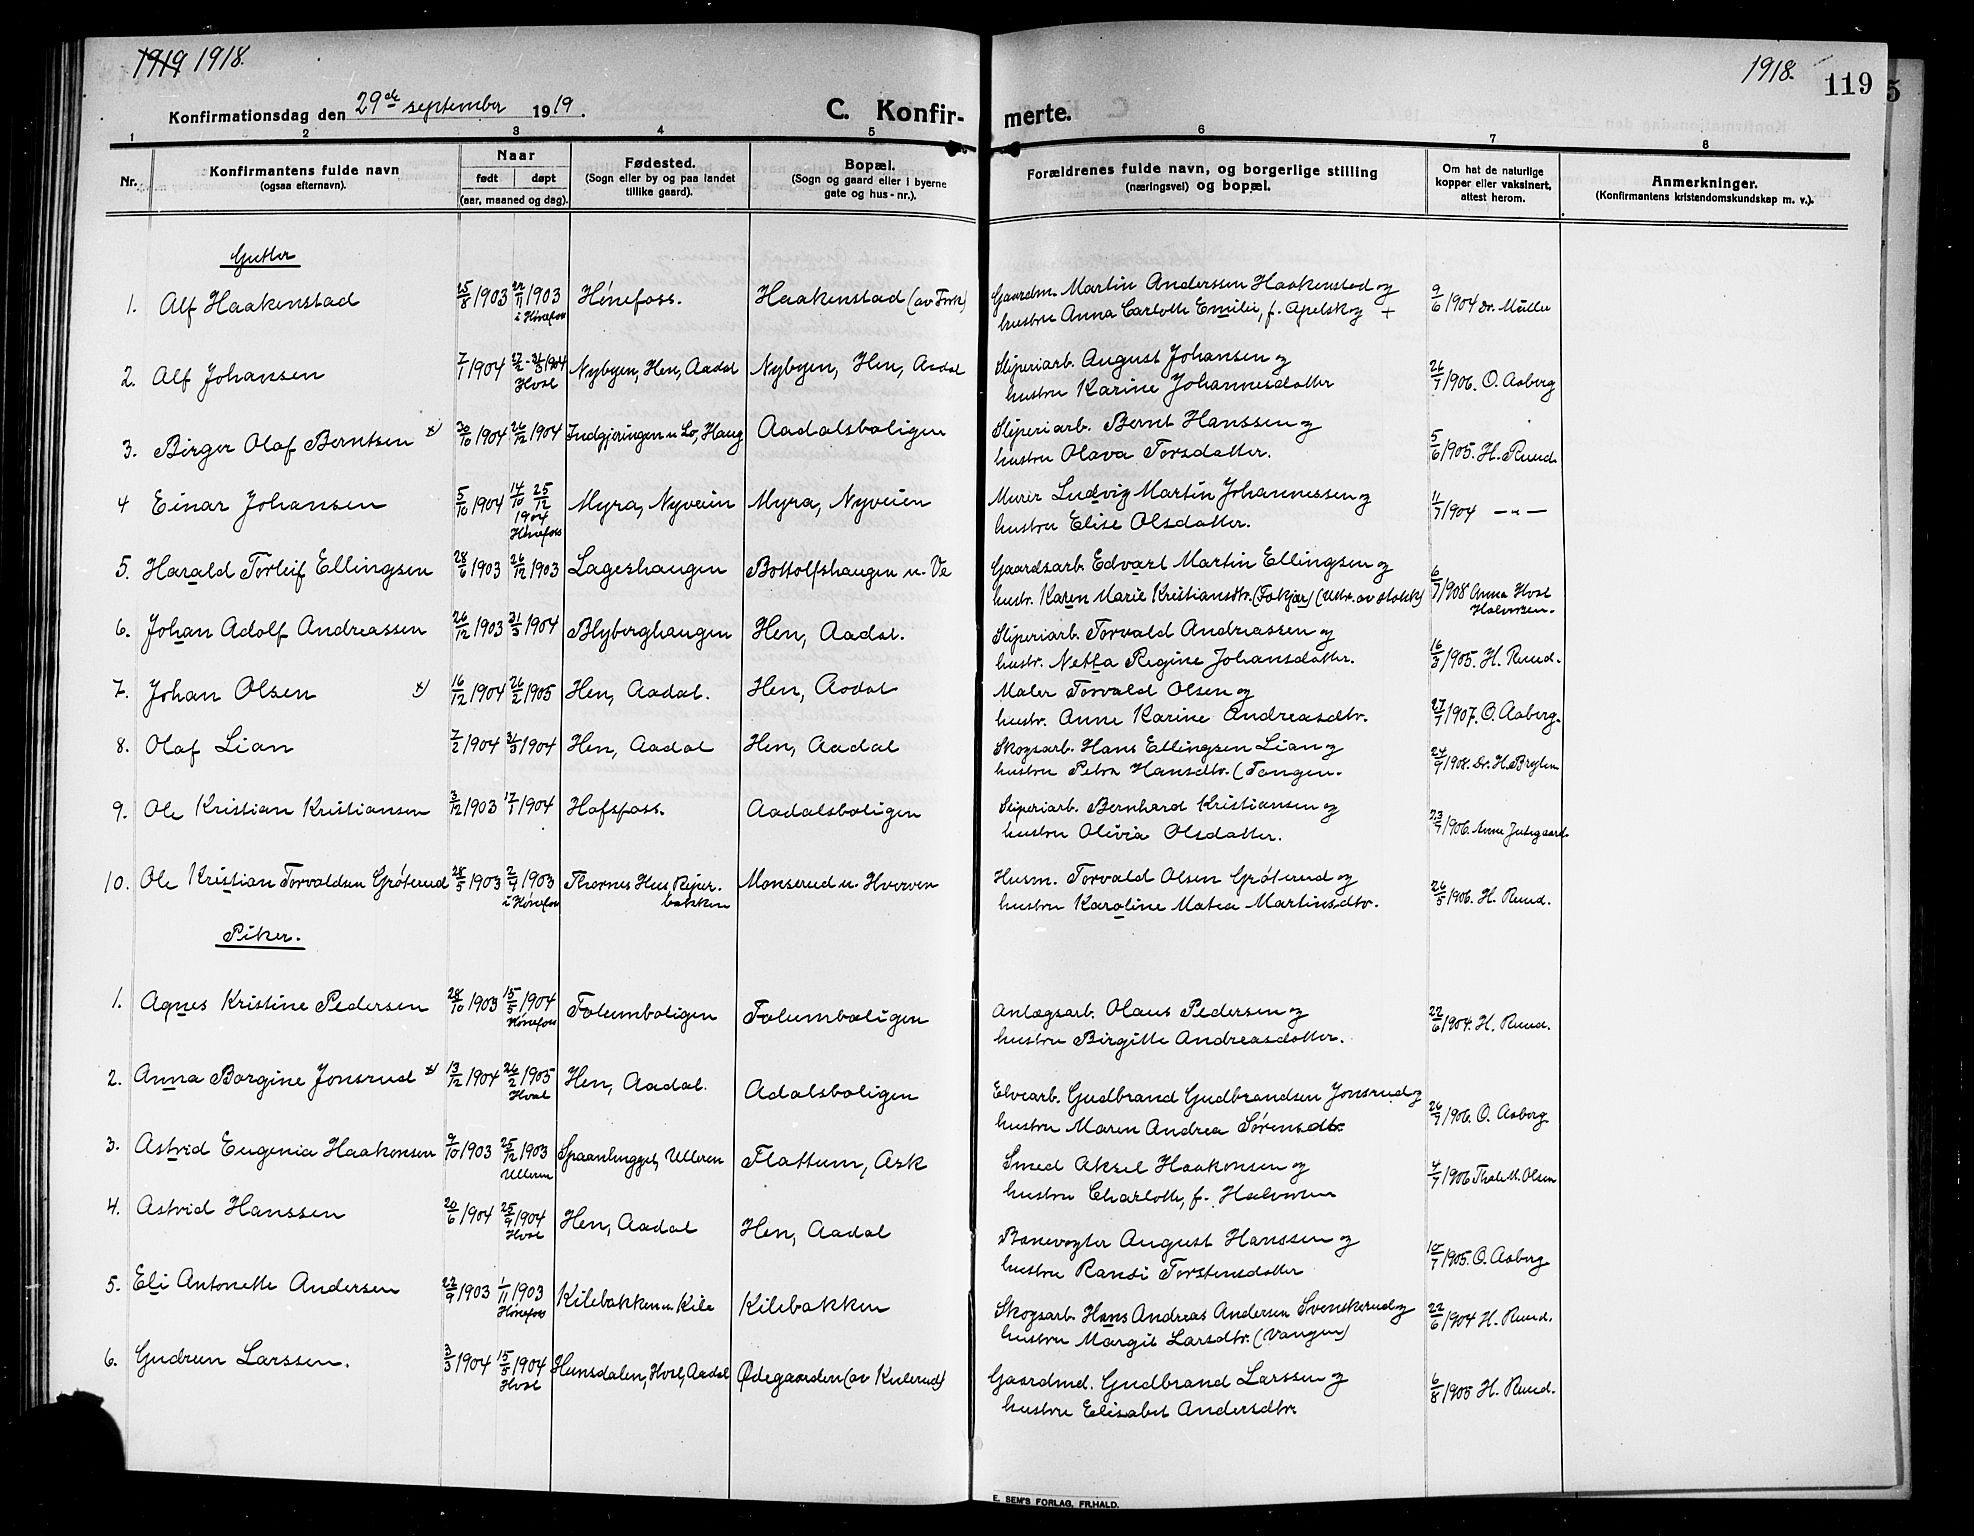 1919 1918.
1918.
119
5
Konfirmationsdag den 29de september 1919.
C. Konfir-
merte.
1 2 3 4 5 6 7 8
Nr.
Konfirmantens fulde navn
(ogsaa efternavn).
Naar
født
døpt
(aar, maaned og dag).
Fødested.
(Sogn eller by og paa landet
tillike gaard).
Bopæl.
(Sogn og gaard eller i byerne
gate og hus-nr.).
Forældrenes fulde navn, og borgerlige stilling
(næringsvei) og bopæl.
Om hat de naturlige
kopper eller vaksinert,
attest herom.
Anmerkninger.
(Konfirmantens kristendomskundskap m. v.).
Gutter
1. Alf Haakenstad 25/8 1903 22/11 1903 i Hønefoss Hønefoss. Haakenstad (av Tork)
Gaardm. Martin Anderssen Haakenstad og
hustru Anna Carlotte Emilie, f. Apelskog + 9/6 1904 Dr. Müller
2. Alf Johansen 7/1 1904 27/2-31/3 1904 Hval Nybyen, Hen, Aadal Nybyen, Hen, Aadal
Sliperiarb. August Johansen og
hustru Karine Johannesdatter 26/7 1906. O. Aaberg
3. Birger Olaf Berntsen x) 30/10 1904 26/12 1904 Indgjeringen u. Lo, Haug Aadalsboligen
Sliperiarb. Bernt Hanssen og
hustru Olava Torsdatter. 5/6 1905. H. Ruud.
4 Einar Johansen 5/10 1904 14/10 25/12 1904 Hønefoss Myra, Nyveien Myra, Nyveien
Murer Ludvig Martin Johannessen og
hustru Elise Olsdatter. 11/7 1904 — „ —
5. Harald Torleif Ellingsen 28/6 1903 26/12 1903 Lageshaugen Bottolfshaugen u. Ve
Gaardsarb. Edvart Martin Ellingsen og
hustr. Karen Marie Kristiansdtr. 6/7 1908 Anna Hval
Halvorsen.
6. Johan Adolf Andreassen 26/12 1903 31/3 1904 Blyberghaugen Hen, Aadal.
Sliperiarb. Torvald Andreassen og
hustr. Netta Regine Johansdatter. 16/3 1905. H. Ruud.
7. Johan Olsen x) 16/12 1904 26/2 1905 Hen, Aadal. Hen, Aadal
Maler Torvald Olsen og
hustr. Anne Karine Andreasdtr. 27/7 1907. O. Aaberg.
8. Olaf Lian 7/2 1904 31/3 1904 Hen, Aadal Hen, Aadal
Skogsarb. Hans Ellingsen Lian og
hustru Petra Hansdtr. (Tangen. 24/9 1908. Dr. H. Bryhn
9. Ole Kristian Kristiansen 3/12 1903 17/1 1904 Hofsfoss. Aadalsboligen
Sliperiarb. Bernhard Kristiansen og
hustru Olivia Olsdatter. 23/7 1906. Anne
10. Ole Kristian Torvaldsen Grøterud 28/5 1903 2/9 1903 i Hønefoss Thornes Hus, Riper-
bakken Monserud u. Hverven
Husm. Torvald Olsen Grøterud og
hustru Karoline Matea Martinsdtr. 26/5 1906. H. Ruud.
Piker.
1. Agnes Kristine Pedersen 28/10 1903 15/5 1904 Hønefoss Folumboligen Folumboligen
Anlægsarb. Olaus Pedersen og
hustru Birgitte Andreasdatter. 22/6 1904. H. Ruud.
2. Anna Borgine Jonsrud x) 13/12 1904 26/2 1905 Hval Hen, Aadal. Adalsboligen
Elvearb. Gudbrand Gudbrandsen Jonsrud og
hustru Maren Andrea Sørensdtr. 26/7 1906. O. Aaberg
3. Astrid Eugenia Haakonsen 9/10 1903 25/12 1903 Ulleren Spaanhugget, Ulleren Flattum, Ask
Smed Aksel Haakonsen og
hustru Charlotte, f. Halvorsen 4/7 1906 Thale M. Olsen
4. Astrid Hanssen 20/6 1904 25/9 1904 Hval Hen, Aadal Hen, Aadal
Banevogter August Hanssen og
hustru Randi Torstensdatter 10/7 1905. O. Aaberg
5. Eli Antonette Andersen 22/9 1903 1/11 1903 Hønefoss Kilebakken u. Kile Kilebakken
Skogsarb. Hans Andreas Andersen Svenskerud og
hustru Margit Larsdtr. (Vangen) 22/6 1904 H. Ruud.
6. Gudrun Larssen. 3/3 1904 15/5 1904 Hval Hunsdalen, Hval, Aadal Ødegaarden (av Kulerud)
Gaardmd. Gudbrand Larssen og
hustru Elisabet Andersdtr. 6/8 1905 H. Ruud.
E. SEM'S FORLAG, FR.HALD.